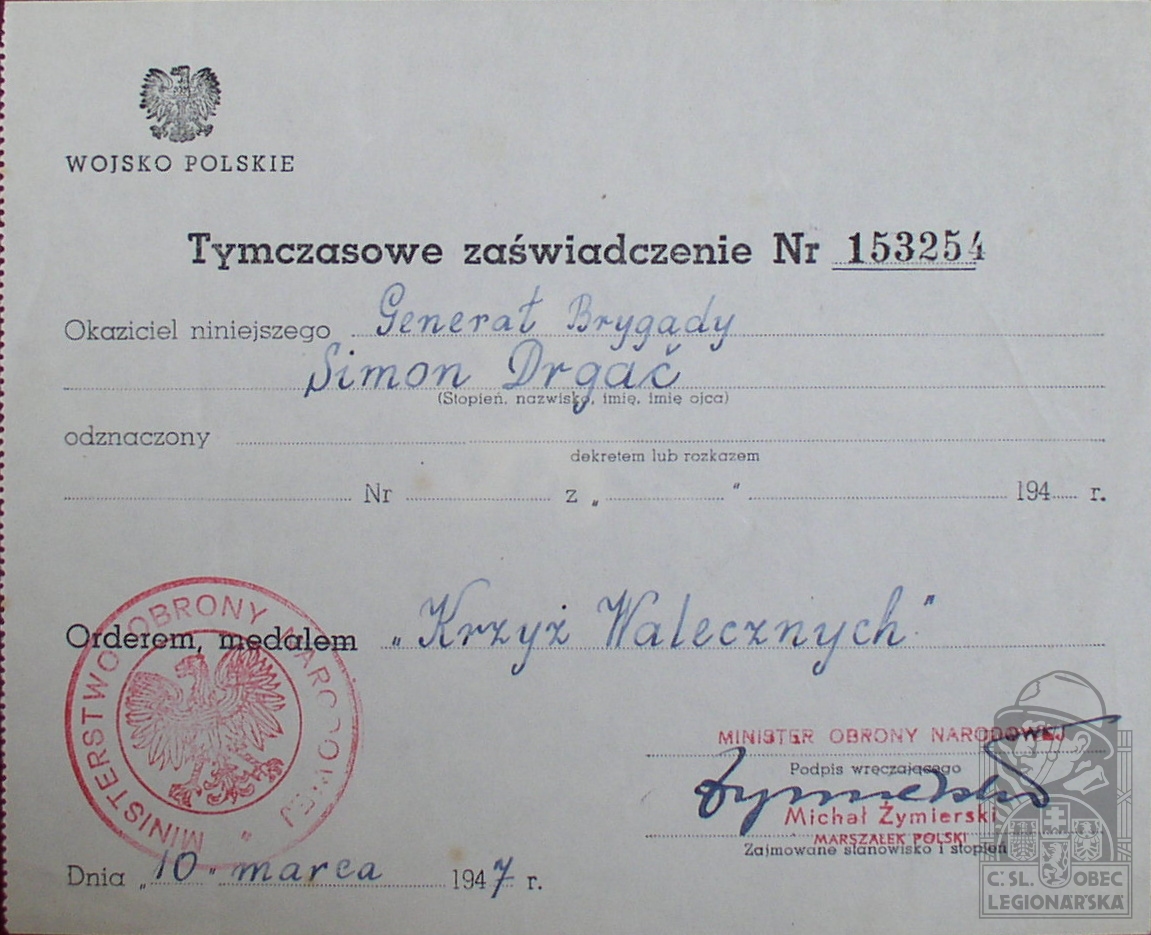 WOJSKO POLSKIE
Tymczasowe zaświadczenie Nr 153254
Okaziciel niniejszego Generał Brygądy
Simon Drgač
(Stopień, nazwisko, imię, imię ojca)
odznaczony
dekretem lub rozkazem
Nr z „ " 194 r.
Orderem, medalem „Krzyż Walecznych"
MINISTERSTWO OBRONY NARODOWEJ
MINISTER OBRONY NARODOWEJ
Podpis wręczającego
Żymierski
Michał Żymierski
MARSZAŁEK POLSKI
Zajmowane stanowisko i stopień
Dnia „10" marca 1947 r.
Č. SL. OBEC
LEGIONÁŘSKÁ